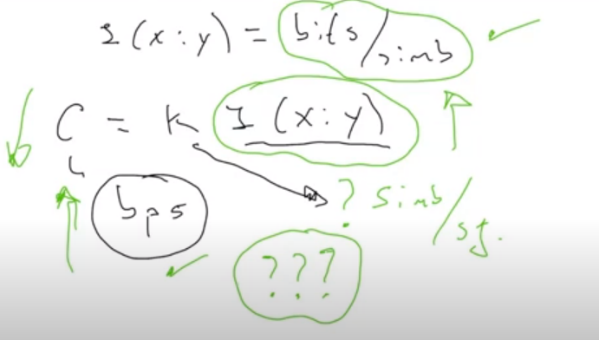 I(x:y) = bits/simb
C = K I(x:y)
bps
? simb/sg.
???